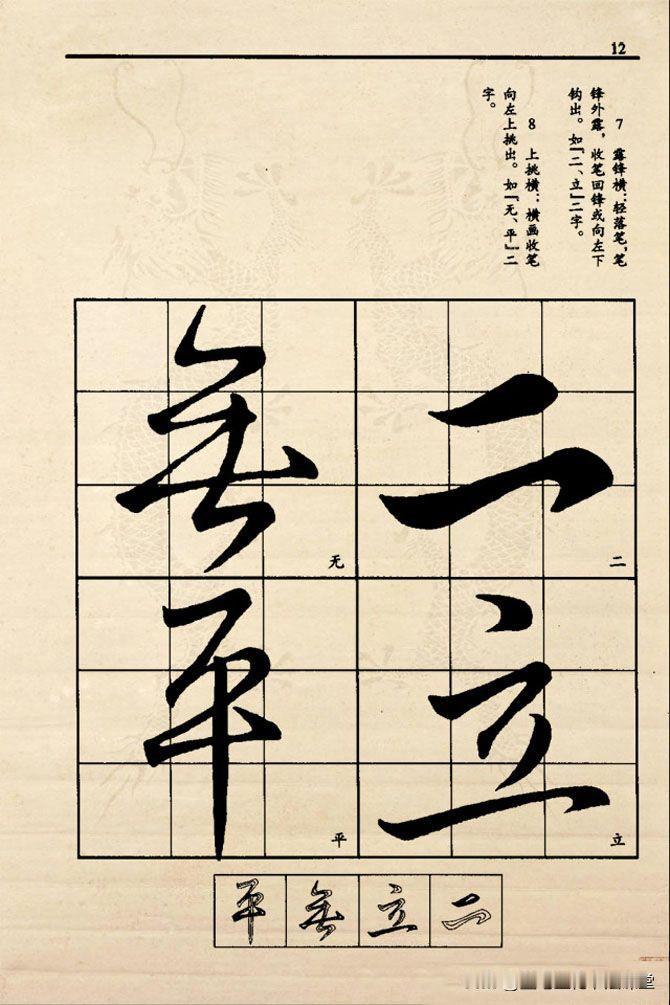 12
7 露锋横：轻落笔，笔
锋外露，收笔回锋或向左下
钩出。如「二、立」二字。
8 上挑横：横画收笔
向左上挑出。如「无、平」二
字。
二
二
立
立
無
无
平
平
二
立
無
平